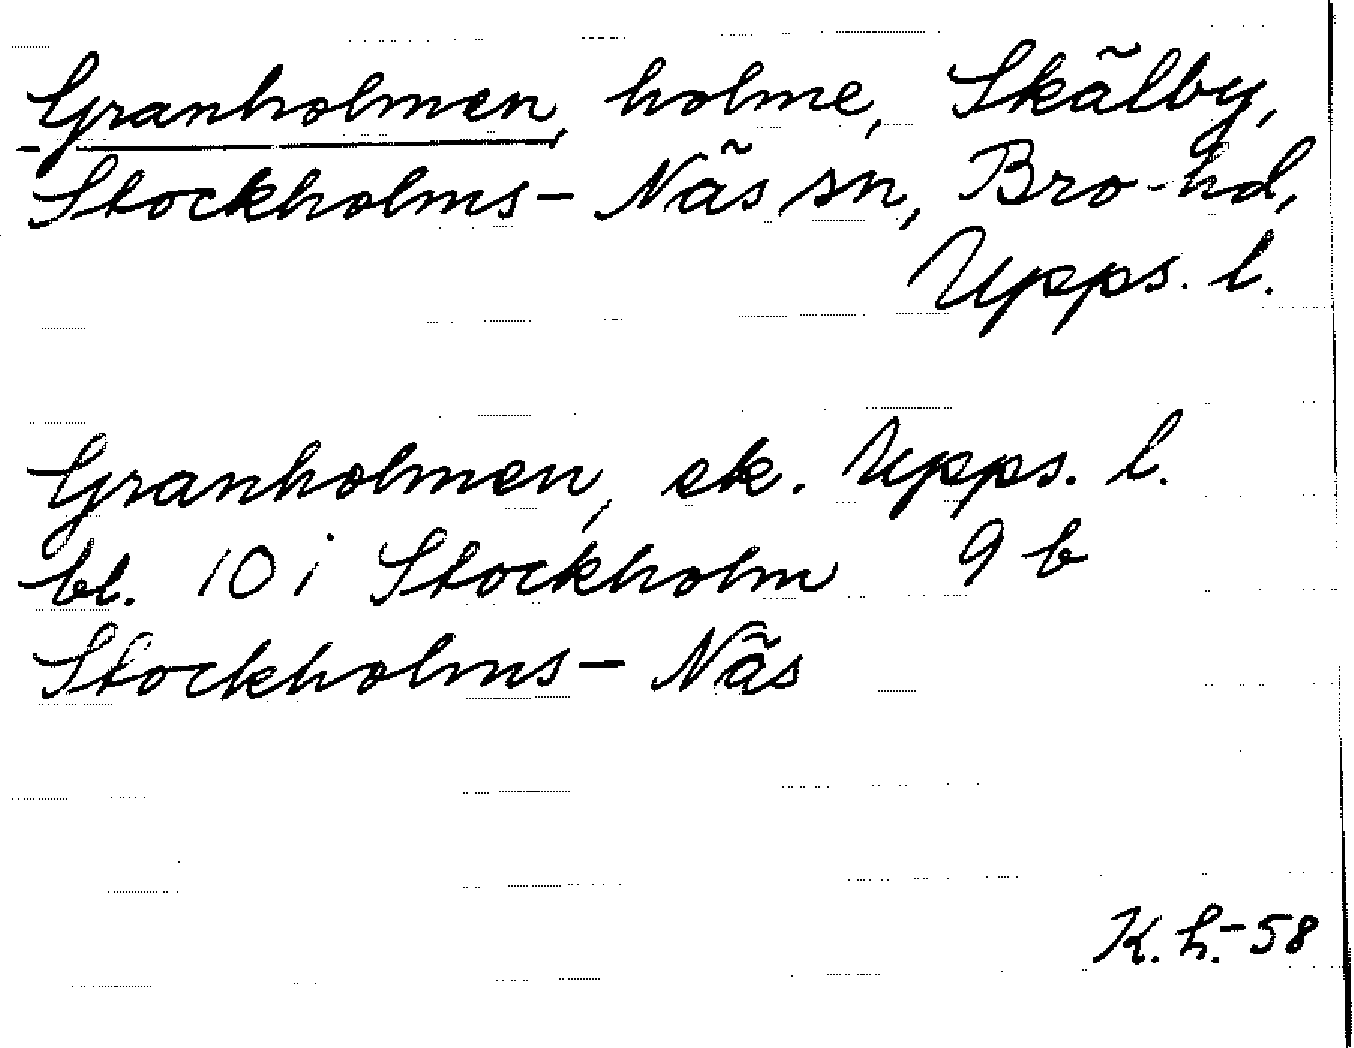 Granholmen, holme, Skälby,
Stockholms-Näs sn, Bro-hd,
Upps. l.
Granholmen, ek. Upps. l.
bl. 10 i Stockholm 9 b
Stockholms-Näs
K. h.-58